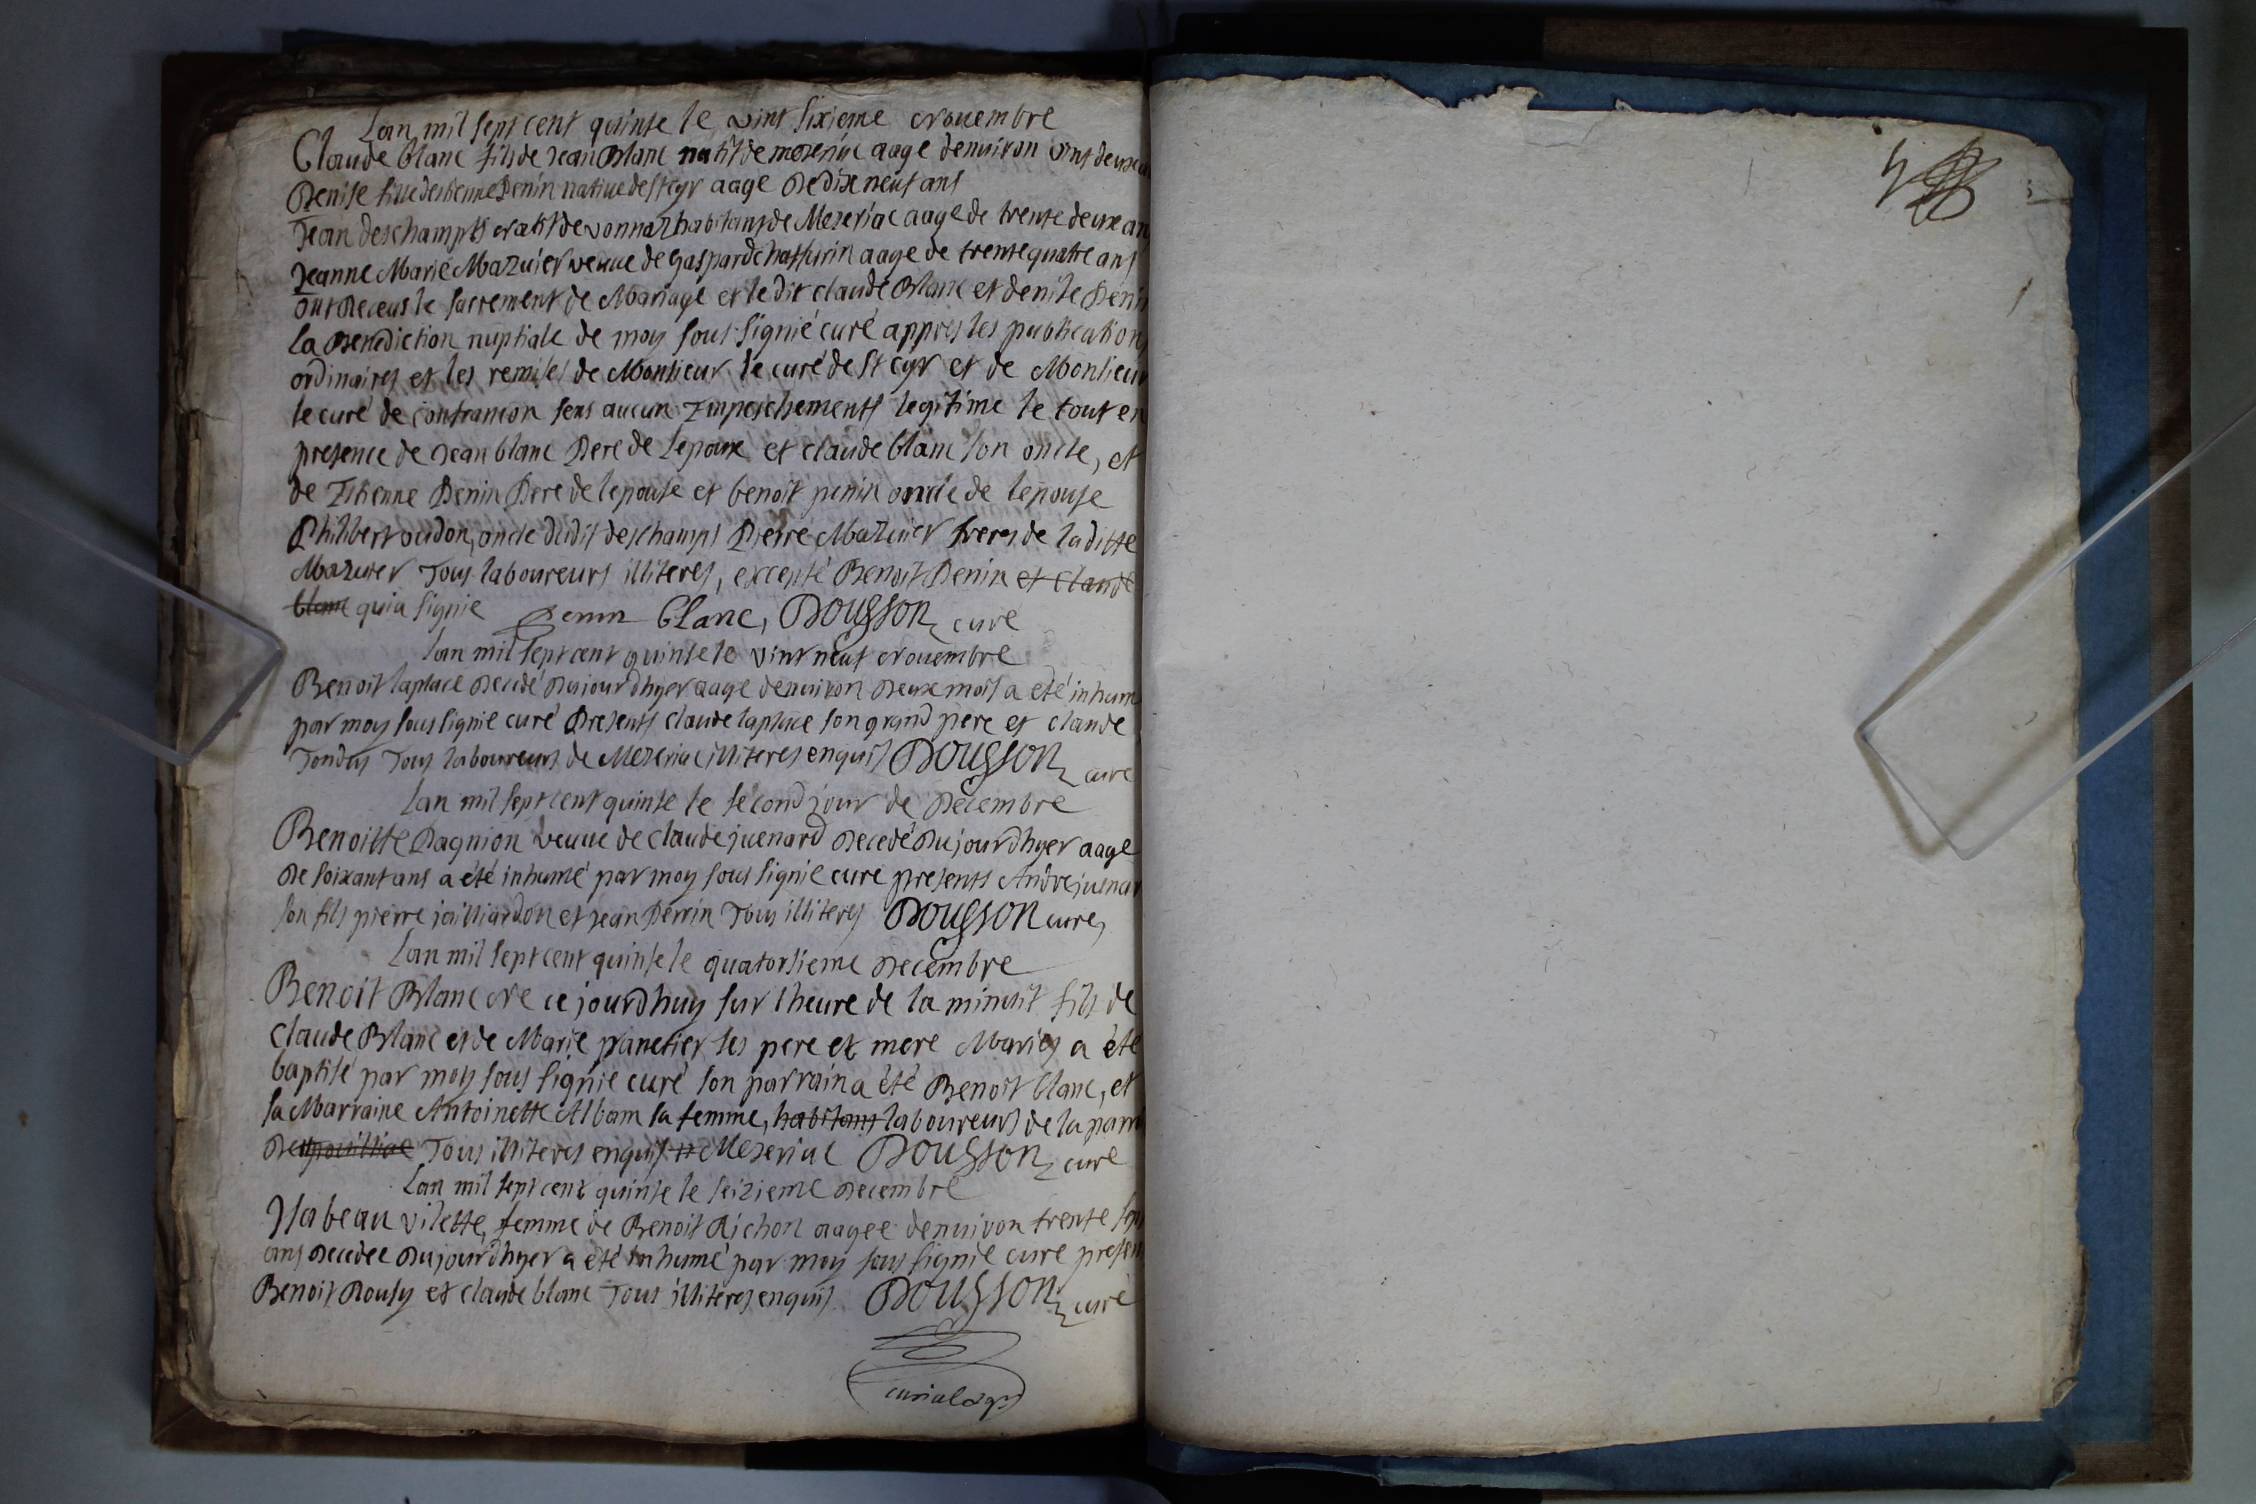 Lan mil sept cent quinse le vint sixieme novembre
Claude blanc fils de Jean Blanc natif de meseriac aage denuiron vint deux
Denise fille destienne Penin natiue de st cyr aage de dix neuf ans
Jean deschamps natif de vonnaz habitant de Meseriac aage de trente deux an
Jeanne Marie Mazuier veuue de gaspard chatturin aage de trente quatre ans
ont Receus le sacrement de Mariage et le dit claude Blanc et denise Penin
la Benediction nuptiale de moy sous signié curé appres les publication
ordinaires et les remises de Monsieur le curé de st cyr et de Monsieur
le curé de confrancon sens aucun Impeschements legitime le tout en
presence de Jean blanc Pere de lepoux et claude blanc son oncle, et
de Etienne Penin Pere de lepouse et benoit penin oncle de lepouse
Philibert oudon, oncle dudit deschamps Pierre Mazuier freres de laditte
Mazuier Tous laboureurs illiteres, excepté Benoit Penin et claude
blanc qui a signie Penin blanc, Dousson curé
lan mil sept cent quinse le vint neuf novembre
Benoit laplace decedé dujourdhyer aage denuiron deux mois a eté inhum
par moy sous signie curé Presents claude laplace son grand pere et claude
Tondus Tous laboureurs de Meseriac illiteres enquis Dousson curé
Lan mil sept cent quinse le second jour de decembre
Benoitte Pagnion veuue de claude juenard decedé dujourdhyer aage
de soixant ans a été inhumé par moy sous signie curé presents André juenar
son fils pierre jailliardon et jean Perrin Tous illiteres Dousson curé
Lan mil sept cent quinse le quatorsieme decembre
Benoit Blanc né ce jourdhuy sur lheure de la minuit fils de
Claude Blanc et de Marie panetier ses pere et mere Maries a été
baptisé par moy sous signie curé son parrain a été Benoit blanc, et
sa Marraine Antoinette Alban sa femme, habitans laboureurs de la parr
de Tous illiteres enquis # Meseriac Dousson curé
Lan mil sept cent quinse le seizieme decembre
Isabeau vilette, femme de Benoit Richon aagee denuiron trente sept
ans decedee dujourdhyer a été inhumé par moy sous signie curé presen
Benoit Rousy et claude blanc Tous illiteres enquis Dousson curé